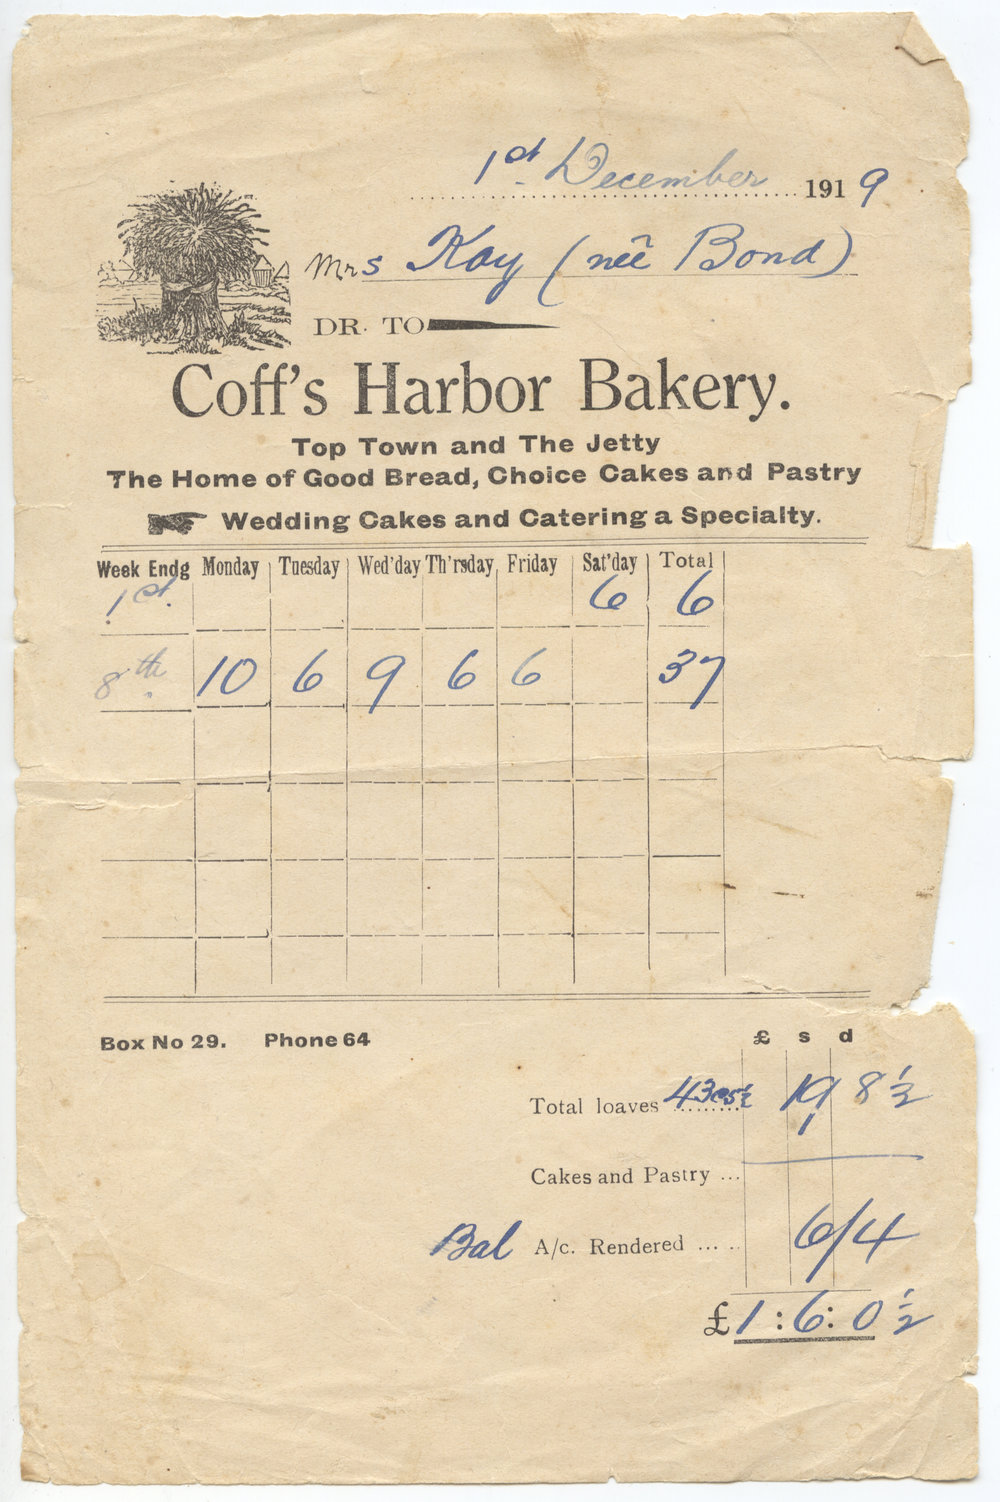 1st December 1919
Mrs Kay (neé Bond)
DR. TO
Coff's Harbor Bakery.
Top Town and The Jetty
The Home of Good Bread, Choice Cakes and Pastry
Wedding Cakes and Catering a Specialty.
Week Endg Monday Tuesday Wed'day Th'rsday Friday Sat'day Total
1st. 6 6
8th 10 6 9 6 6 37
Box No 29. Phone 64
£ s d
Total loaves 43 @ 5½ 19 8½
Cakes and Pastry ...
Bal A/c. Rendered ..... 6/4
£1:6:0½